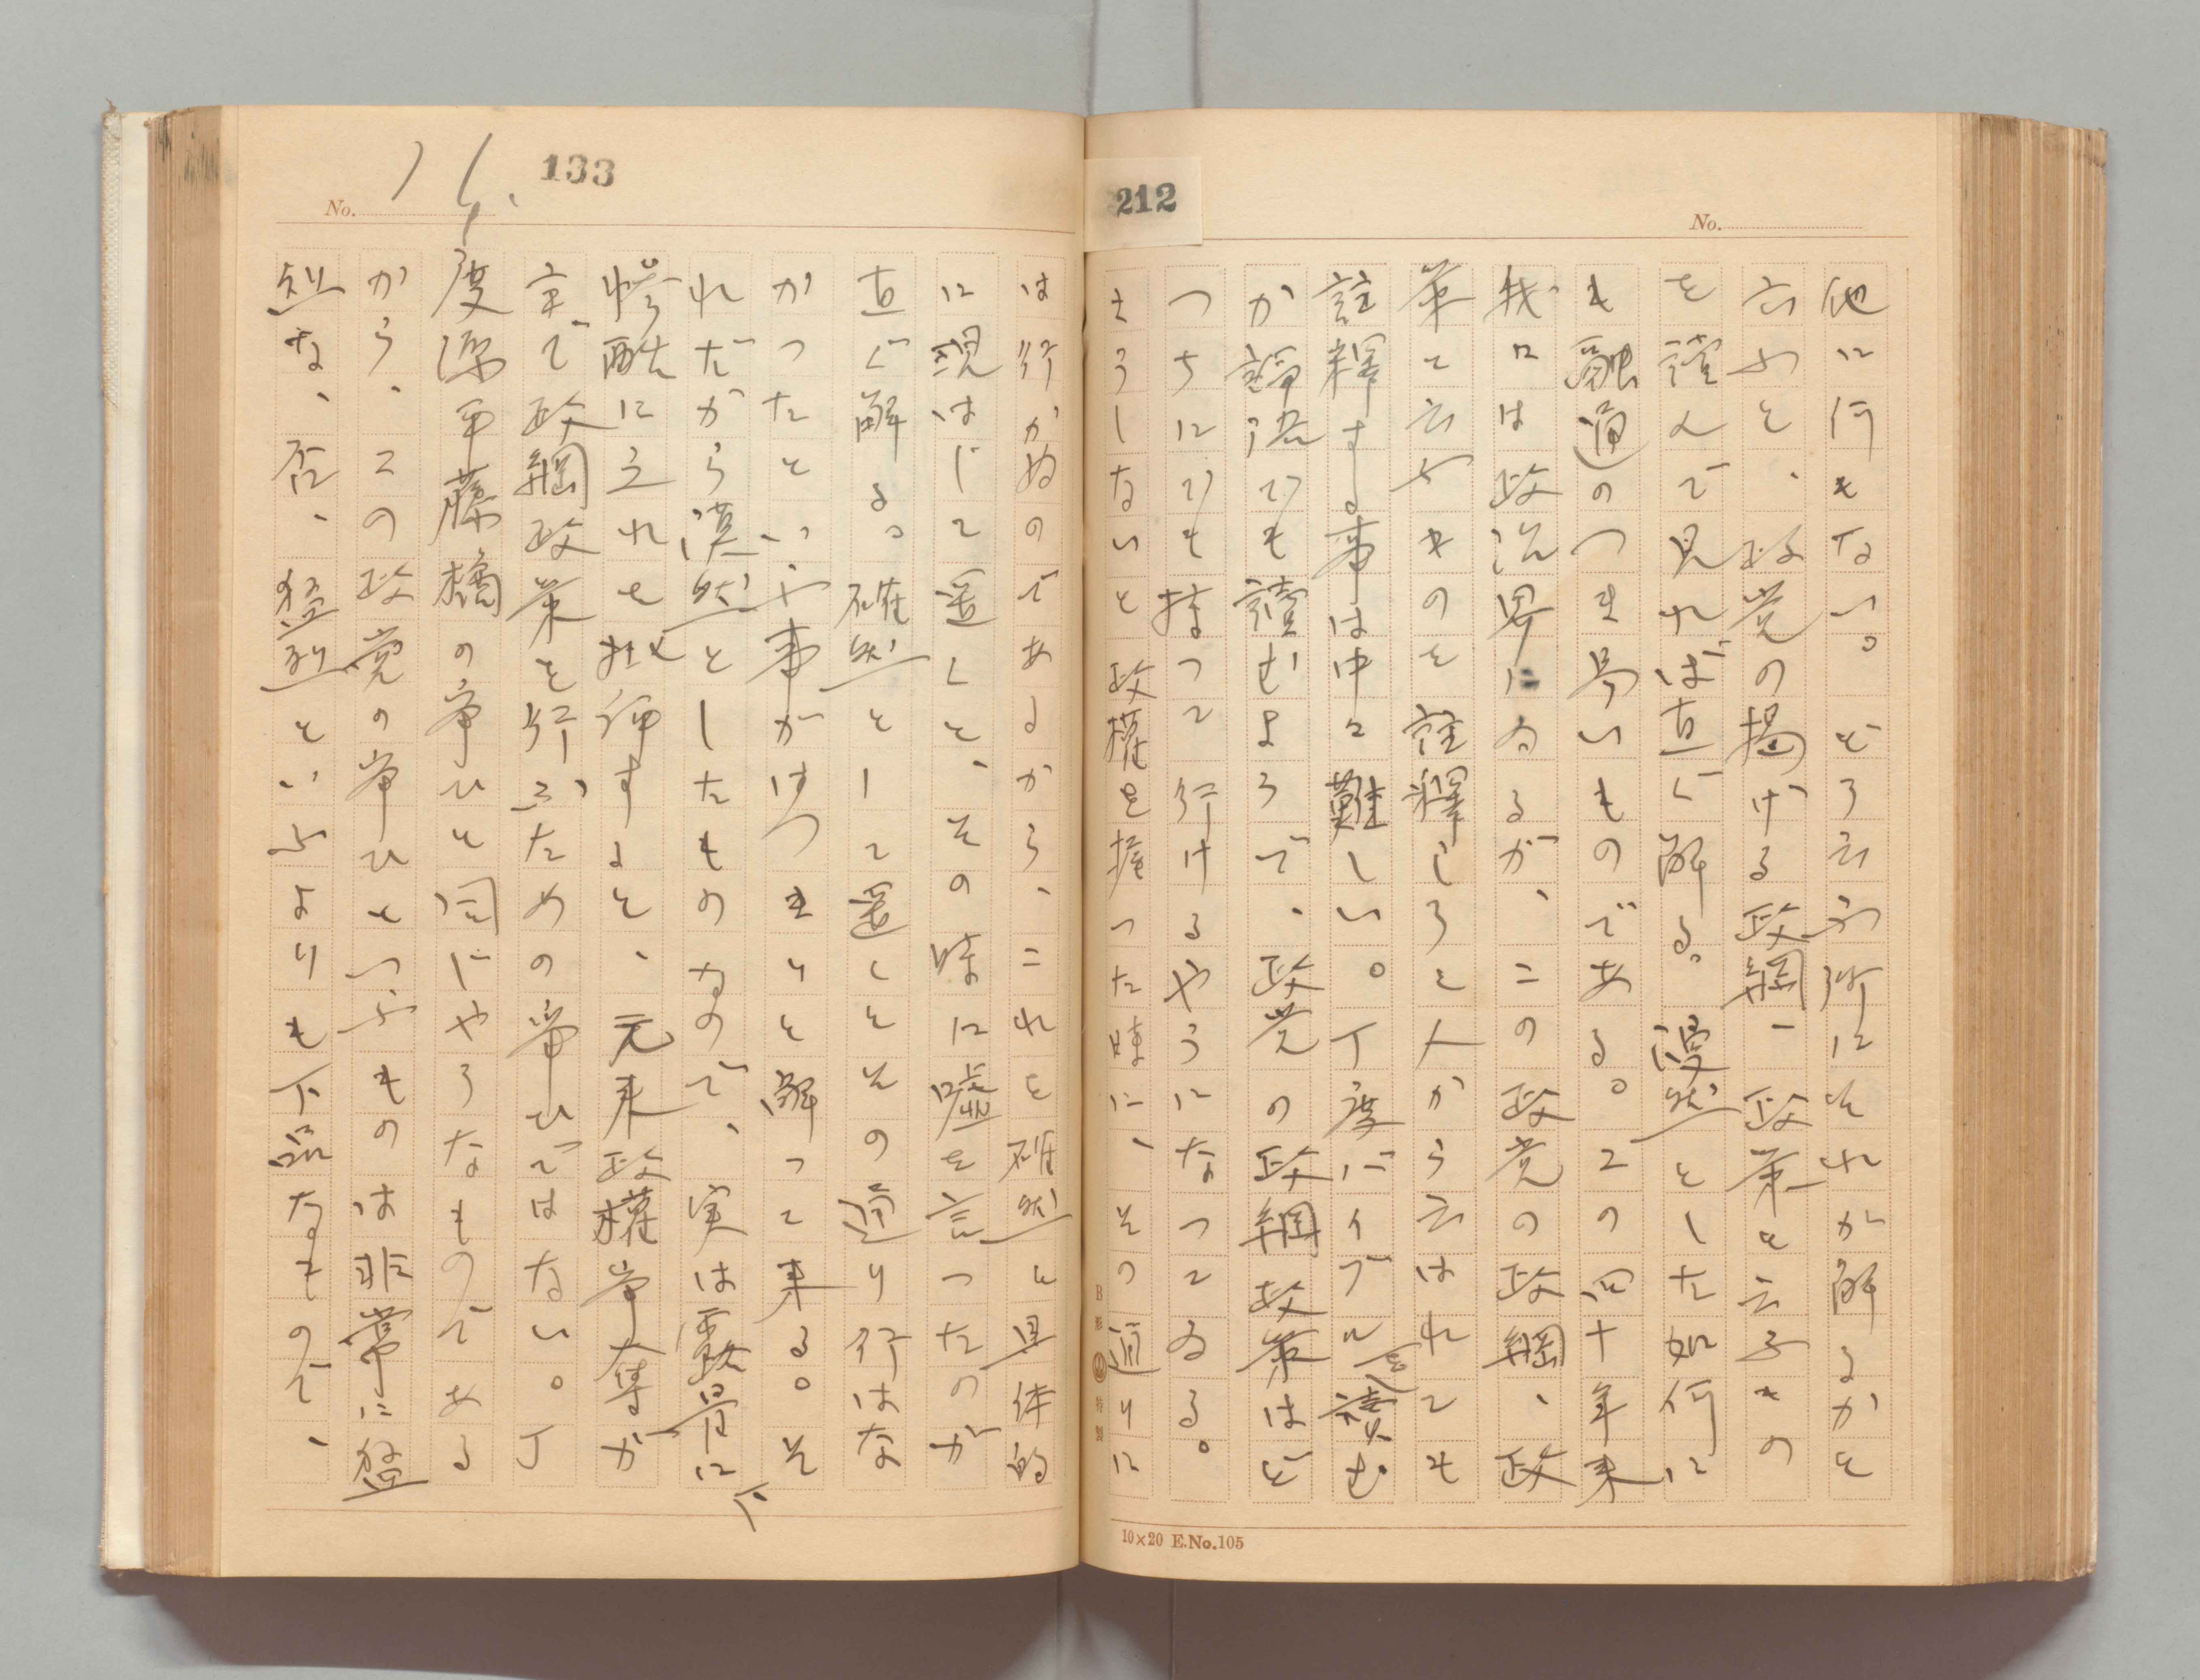 212
No.
他に何もない。どう云ふ所にそれが解るかと
云ふと、政党の掲げる政綱、政策と云ふもの
を読んで見れば直ぐ解る。漠然とした如何に
も融通のつき易いものである。この四十年来
我には政治界にゐるが、この政党の政綱、政
策と云ふものを註釋しろと人から云はれても
註釋する事は中々難しい。丁度バイブルを讀む
か論語でも讀むようで、政党の政綱政策はど
つちにでも持つて行けるやうになつてゐる。
さうしないと政權を握った時に、その通りに
10×20 E.No.105
B 形 特製
133
No. 16.
は行かぬのであるから、これを確然と具体的
に現はして置くと、その時に嘘を言ったのが
直ぐ解る。確然として置くとその通り行はな
かったといふ事がはつきりと解って来る。そ
れだから漠然としたものなので、実は露骨に下
惨酷にこれを批評すると、元来政權争奪が
主で政綱政策を行ふための争ひではない。丁
度源平藤橘の争ひと同じやうなものである
から、この政党の争ひといふものは非常に猛
烈な、否、猛烈といふよりも下品なもので、